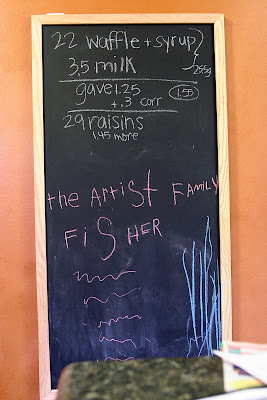 22 waffle + syrup
3.5 milk
25.5g
gave 1.25
+.3 corr
1.55
29 raisins
1.45 more
the ARtiST FAMILY
FiSHER